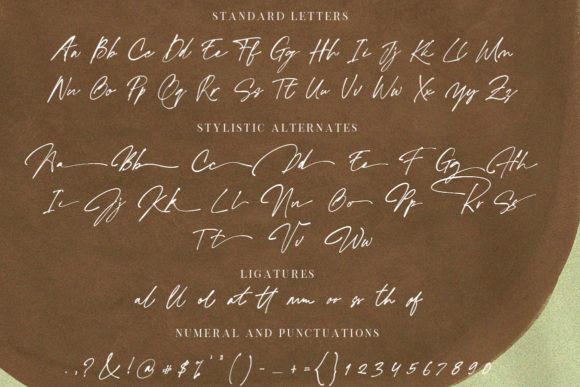 STANDARD LETTERS
Aa Bb Cc Dd Ee Ff Gg Hh Ii Jj Kk Ll Mm
Nn Oo Pp Qq Rr Ss Tt Uu Vv Ww Xx Yy Zz
STYLISTIC ALTERNATES
Aa Bb Cc Dd Ee F Gg Hh
Ii Jj Kk Ll Nn Oo Pp Rr Ss
Tt Vv Ww
LIGATURES
al ll ol at tt mm or ss th of
NUMERAL AND PUNCTUATIONS
.,?&!@#$%'"()-_+={}1234567890